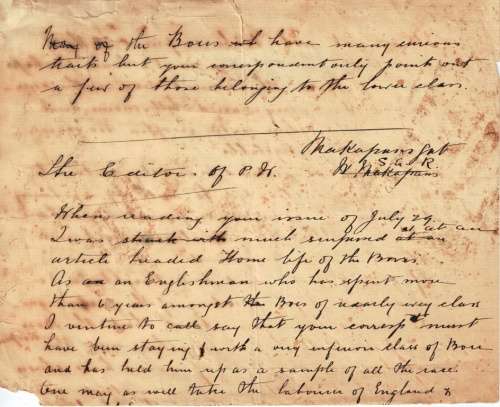 Many of the Boers wh have many curious
traits but your correspondent only points out
a few of those belonging to the lower class.
Makapans gat
S. A. R
The Editor of P. N.
Makapans
When reading your issue of July 29
I was struck with much surprised at an
article headed Home life of the Boers.
As an Englishman who has spent more
than 6 years amongst the Boers of nearly every class
I venture to call say that your corresp^t must
have been staying with a very inferior class of Boer
and has held him up as a sample of all the race
One may as well take the labourer of England &